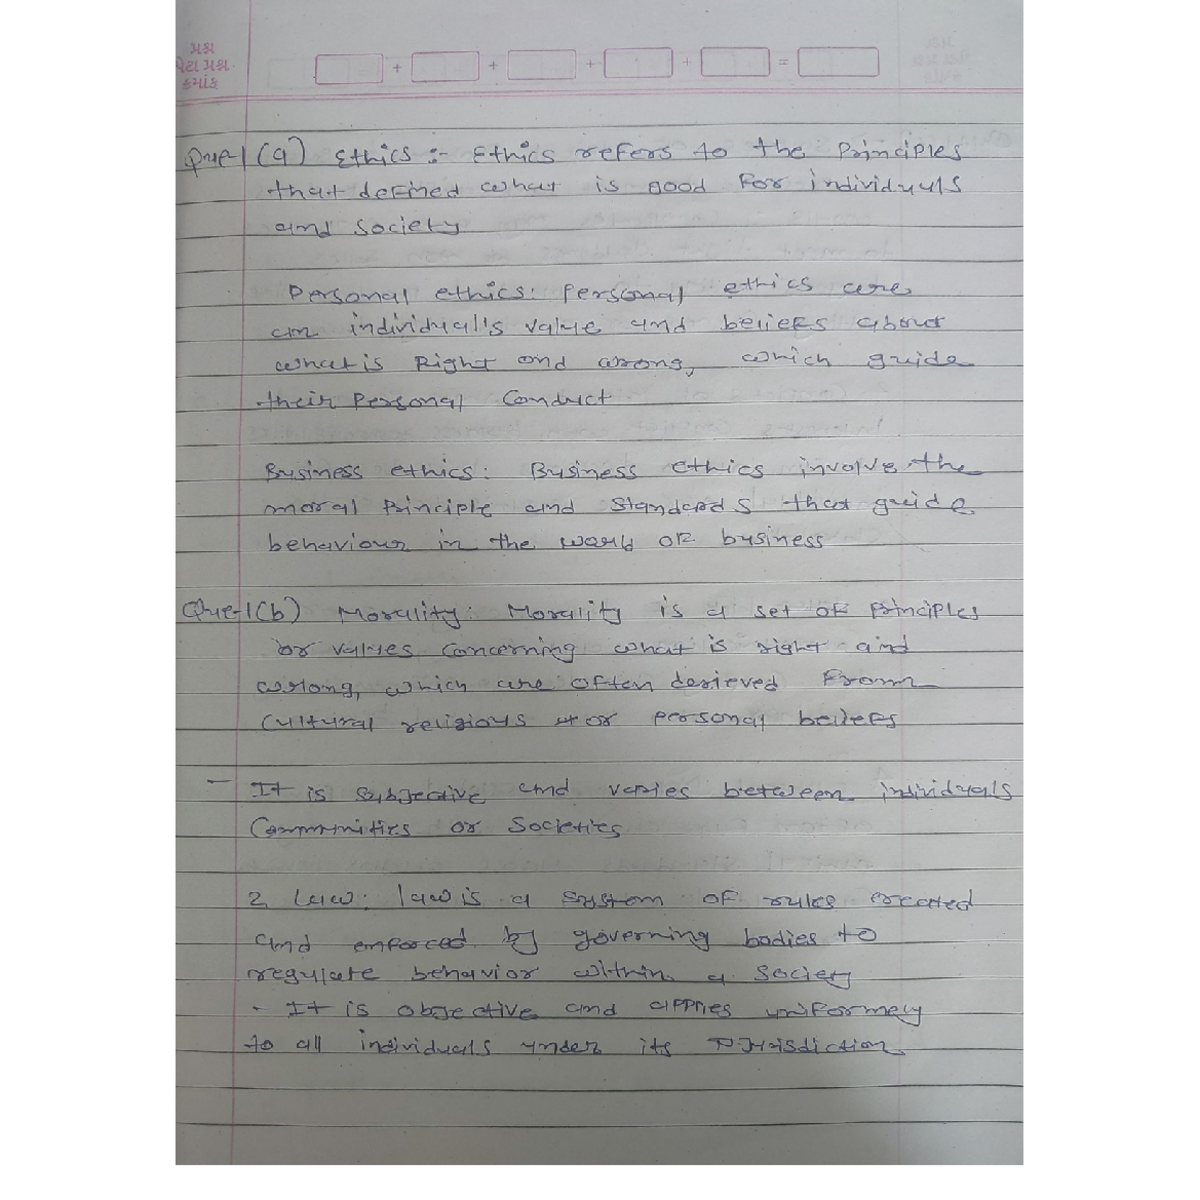 પ્રશ્ન
પેટા પ્રશ્ન
ક્રમાંક
+ + + + =
Que-1 (a) Ethics :- Ethics refers to the Principles
that defined what is good for individuals
and society
Personal ethics: Personal ethics are
an individual's value and beliefs about
what is Right and wrong, which guide
their Personal Conduct
Business ethics: Business ethics involve the
moral Principle and Standards that guide
behaviour in the world of business
Que-1(b) Morality: Morality is a set of Principles
or values concerning what is right and
wrong, which are often derieved from
cultural religious or personal beliefs
- It is subjective and varies between individuals
Communities or Societies
2 Law: law is a system of rules created
and enforced by governing bodies to
regulate behavior within a society
- It is objective and applies uniformely
to all individuals under its Jurisdiction